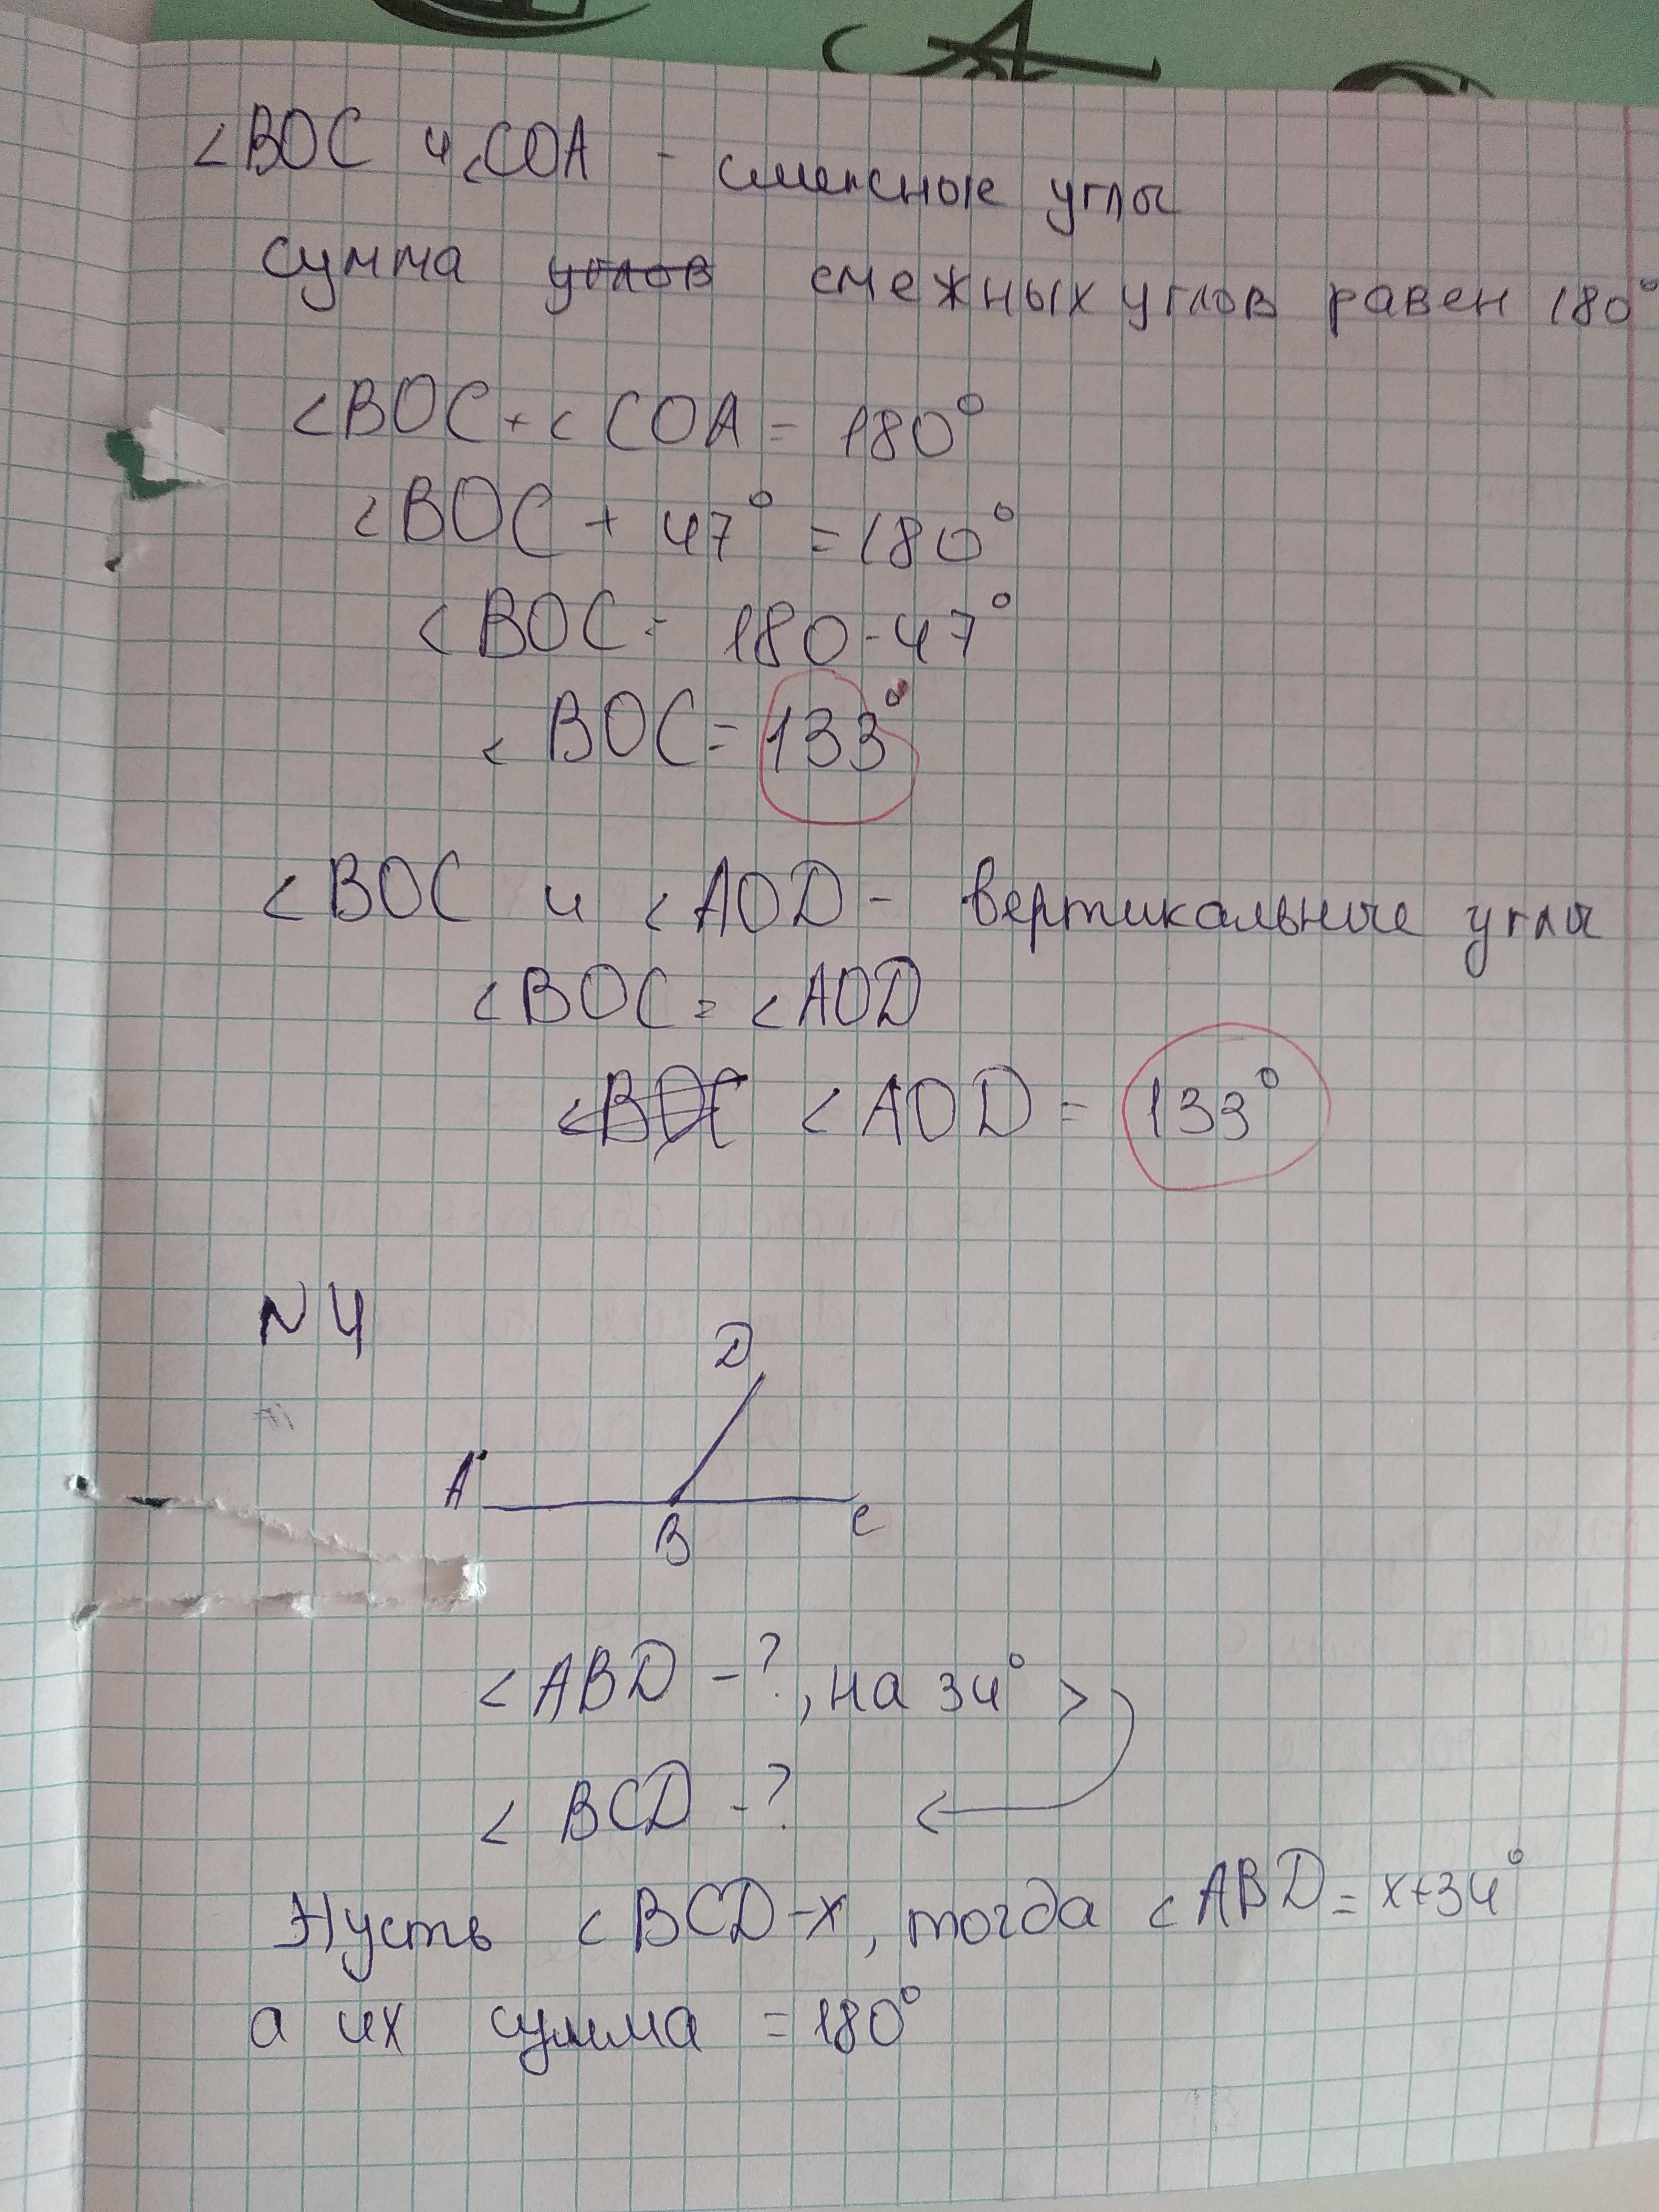 <BOC и <COA - смежные углы
сумма углов смежных углов равен 180°
<BOC + < COA = 180°
<BOC + 47° = 180°
< BOC = 180 - 47°
< BOC = 133°
<BOC и <AOD - вертикальные углы
<BOC = <AOD
<BOC < AOD = 133°
N4
D
A
B
C
< ABD - ?, на 34° >
< BCD - ?
Пусть < BCD - x, тогда < ABD = x+34°
а их сумма = 180°